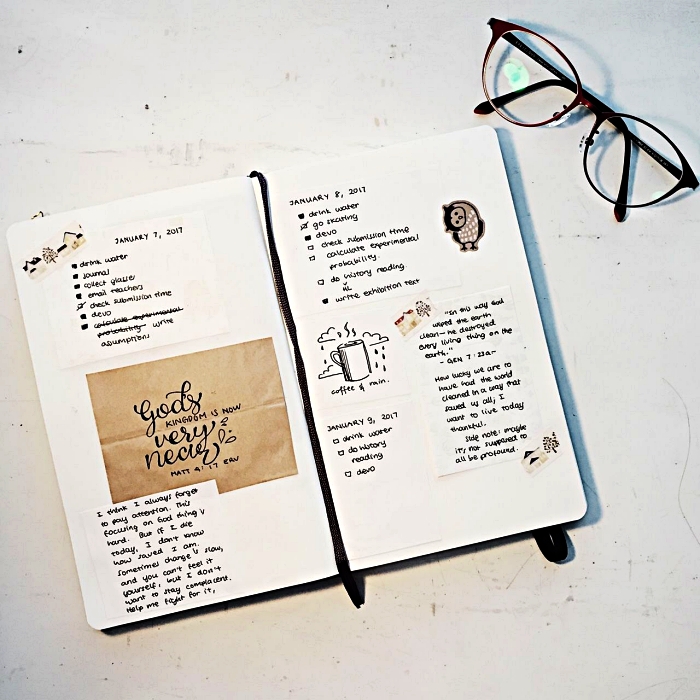 JANUARY 7, 2017
drink water
journal
collect glasse
email teachers
check submission time
devo
calculate experimental
probability write
assumptions
God's
KINGDOM IS NOW
very
near
MATT 4:17 ERV
I think I always forget
to pay attention. This
focusing on God thing
hard. But if I die
today, I don't know
how saved I am.
Sometimes change slow,
and you can't feel it
yourself, but I don't
want to stay complacent.
Help me fight for it,
JANUARY 8, 2017
drink water
go skating
devo
check submission time
calculate experimental
probability.
do history reading
write exhibition text
coffee & rain.
"In this way God
wiped the earth
clean— he destroyed
every living thing on the
earth."
- GEN 7:23a-
How lucky we are to
have had the world
cleaned in a way that
saved us all; I
want to live today
thankful.
Side note: maybe
it's not supposed to
all be profound.
JANUARY 9, 2017
drink water
do history
reading
devo